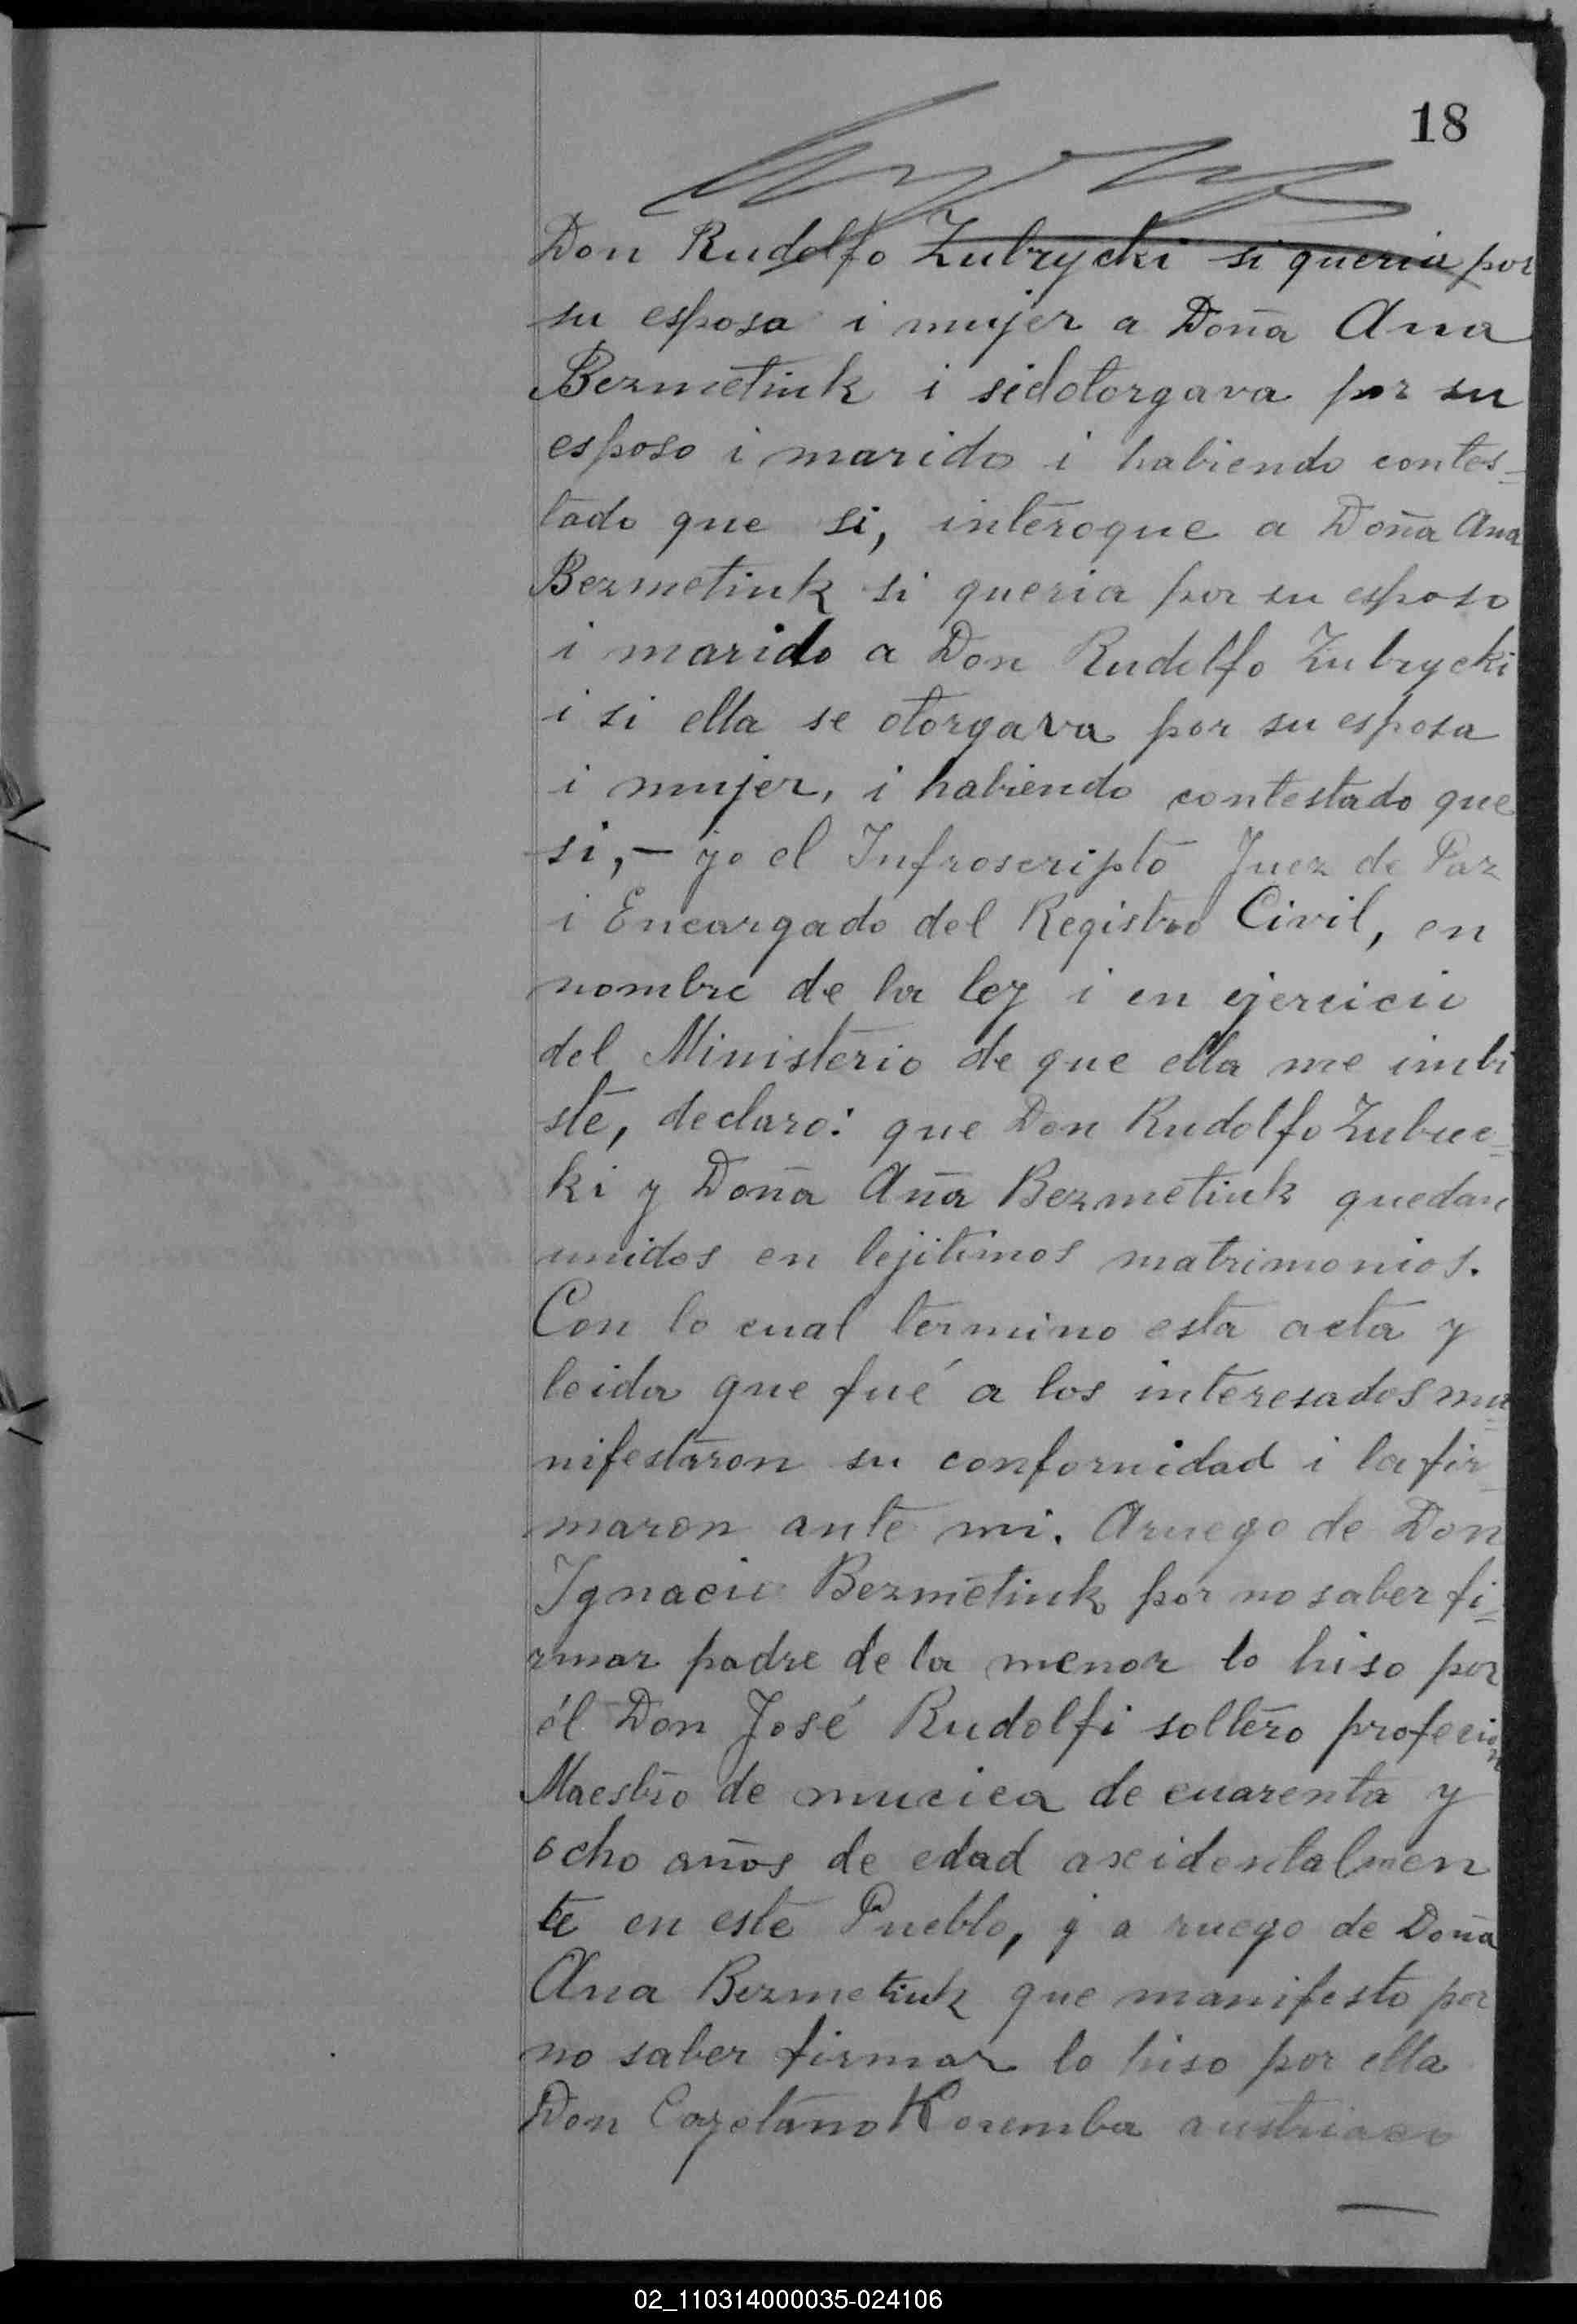 18
Don Rudolfo Zubrycki si queria por
su esposa i mujer a Doña Ana
Bezmetiuk i sidotorgava por su
esposo i marido i habiendo contes-
tado que si, interoque a Doña Ana
Bezmetiuk si queria por su esposo
i marido a Don Rudolfo Zubrycki
i si ella se otorgava por su esposa
i mujer, i habiendo contestado que
si,- yo el Infroscripto Juez de Paz
i Encargado del Registro Civil, en
nombre de la ley i en ejercicio
del Ministerio de que ella me imbi
ste, declaro: que Don Rudolfo Zubric-
ki y Doña Aña Bezmetiuk quedan
unidos en lejitimos matrimonios.
Con lo cual termino esta acta y
leida que fué a los interesados ma-
nifestaron su conformidad i la fir-
maron ante mi. Aruego de Don
Ignacio Bezmetiuk por no saber fi-
rmar padre de la menor lo hiso por
él Don José Rudolfi soltero profecion
Maestro de mucica de cuarenta y
ocho años de edad axidentalmen
te en este Pueblo, y a ruego de Doña
Ana Bezmetiuk que manifesto por
no saber firmar lo hiso por ella
Don Cayetano Koremba austriaco
02_110314000035-024106